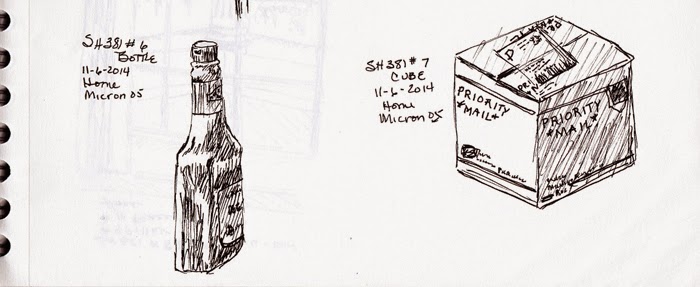 SH381 # 6
BOTTLE
11-6-2014
Home
Micron 05
SH381 # 7
CUBE
11-6-2014
Home
Micron 05
P
PRIORITY
*MAIL*
PRIORITY
*MAIL*